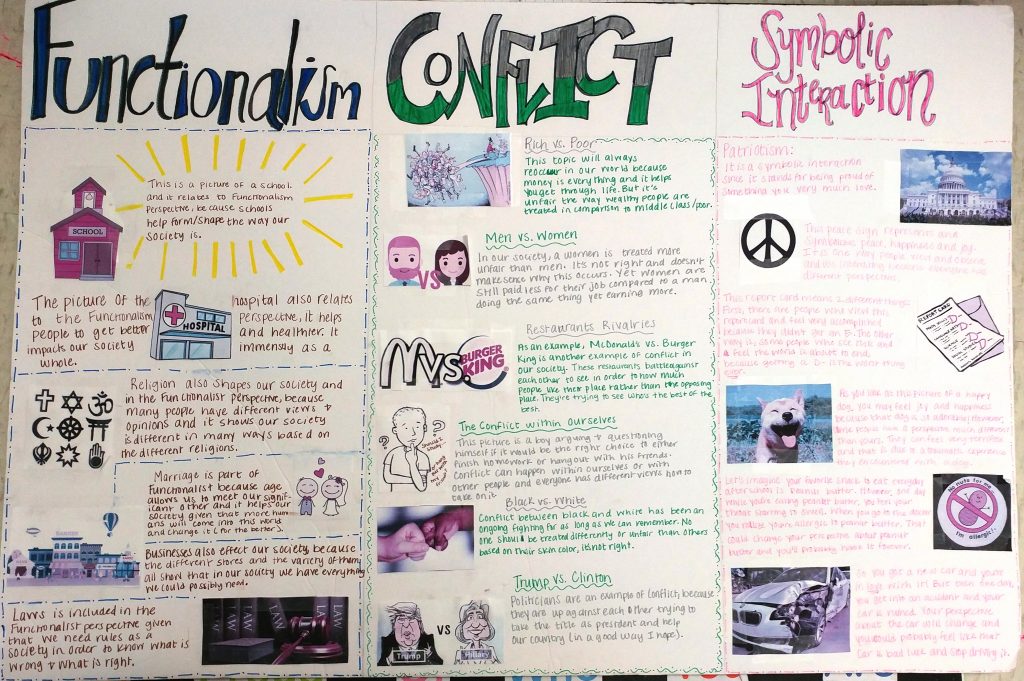 Functionalism
This is a picture of a school.
and it relates to Functionalism
Perspective, because schools
help form/shape the way our
Society is.
SCHOOL
The picture of the
to the Functionalism
people to get better
impacts our society
whole.
HOSPITAL
hospital also relates
perspective, It helps
and healthier. It
immensely as a
Religion also shapes our society and
in the Functionalist perspective, because
many people have different views +
opinions and it shows our society
is different in many ways based on
the different religions.
Marriage is part of
Functionalist because age
allows us to meet our signif-
icant other and it helps our
society given that more hum
ans will come into this world
and change it (for the better).
Businesses also effect our society, because
the different stores and the variety of them
all show that in our society we have everything
we could possibly need.
Laws is included in the
Functionalist perspective given
that we need rules as a
society in order to know what is
wrong + what is right.
LAW
LAW
Conflict
Rich vs. Poor
This topic will always
reoccur in our world because
money is everything and it helps
you get through life. But it's
unfair the way wealthy people are
treated in comparison to middle class/poor.
VS
Men vs. Women
In our society, a women is treated more
unfair than men. It's not right and doesn't
make sense why this occurs. Yet women are
still paid less for their job compared to a man
doing the same thing yet earning more.
M vs. BURGER KING
Restaurants Rivalries
As an example, McDonald's vs. Burger
King is another example of conflict in
our society. These restaurants battle against
each other to see in order to how much
people like their place rather than the opposing
place. They're trying to see who's the best of the
best.
The Conflict within Ourselves
This picture is a boy arguing + questioning
himself if it would be the right choice to either
finish homework or hangout with his friends.
Conflict can happen within ourselves or with
other people and everyone has different views how to
take on it.
Black vs. White
Conflict between black and white has been an
ongoing fighting for as long as we can remember. No
one should be treated differently or unfair than others
based on their skin color, it's not right.
Trump vs. Clinton
Politicians are an example of Conflict, because
they are up against each other trying to
take the title as president and help
our country (in a good way I hope).
Trump
VS
Hillary
Symbolic
Interaction
Patriotism:
It is a symbolic interaction
since it stands for being proud of
something you very much love.
This peace sign represents and
symbolizes peace, happiness and joy.
It is one way people view and observe
and its interesting because everyone has
different perspectives.
This report card means 2 different things.
First, there are people who view this
report card and feel very accomplished
because they didn't get an F. The other
way is, some people who see this and
feel the world is about to end,
because getting a D- is the worst thing
ever.
REPORT CARD
As you look at this picture of a happy
dog, you may feel joy and happiness
because that dog is adorable. However,
some people have a perspective much different
than yours. They can feel very terrified
and that is due to a traumatic experience
they encountered with a dog.
Let's imagine your favorite snack to eat everyday
after school is peanut butter. However, one day
while you're eating peanut butter, you feel your
throat starting to swell. When you go to the doctor
you realize you're allergic to peanut butter. That
could change your perspective about peanut
butter and you'll probably hate it forever.
No nuts for me
I'm allergic!
So you got a new car and you're
in love with it! But then one day,
you get into an accident and your
car is ruined. Your perspective
about the car will change and
you would probably feel like that
car is bad luck and stop driving it.